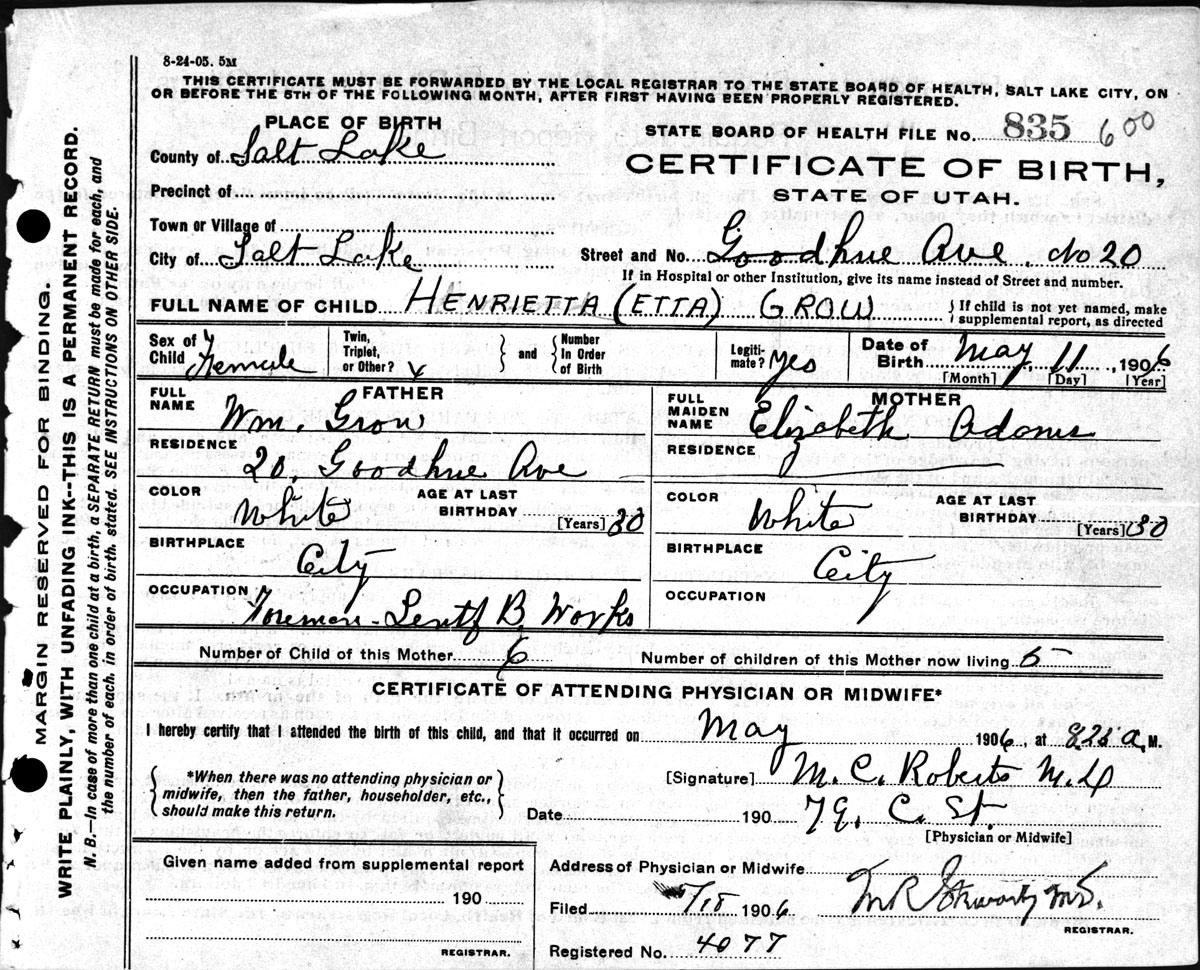 8-24-05. 5M
THIS CERTIFICATE MUST BE FORWARDED BY THE LOCAL REGISTRAR TO THE STATE BOARD OF HEALTH, SALT LAKE CITY, ON
OR BEFORE THE 5TH OF THE FOLLOWING MONTH, AFTER FIRST HAVING BEEN PROPERLY REGISTERED.
PLACE OF BIRTH
STATE BOARD OF HEALTH FILE No. 835 600
County of Salt Lake
CERTIFICATE OF BIRTH,
Precinct of
STATE OF UTAH.
Town or Village of
City of Salt Lake
Street and No. Goodhue Ave. No 20
If in Hospital or other Institution, give its name instead of Street and number.
FULL NAME OF CHILD HENRIETTA (ETTA) GROW { If child is not yet named, make
supplemental report, as directed
Sex of Child Female
Twin, Triplet, or Other?
and
Number In Order of Birth
Legiti-mate? Yes
Date of Birth May 11, 1906
[Month] [Day] [Year]
FATHER
FULL NAME Wm. Grow
RESIDENCE 20. Goodhue Ave
COLOR White
AGE AT LAST BIRTHDAY [Years] 30
BIRTHPLACE City
OCCUPATION Foreman B. Works
MOTHER
FULL MAIDEN NAME Elizabeth Adams
RESIDENCE
COLOR White
AGE AT LAST BIRTHDAY [Years] 30
BIRTHPLACE City
OCCUPATION
Number of Child of this Mother 6
Number of children of this Mother now living 5
CERTIFICATE OF ATTENDING PHYSICIAN OR MIDWIFE*
I hereby certify that I attended the birth of this child, and that it occurred on May 1906, at 825 a. M.
{ *When there was no attending physician or
midwife, then the father, householder, etc.,
should make this return. }
[Signature] M. C. Roberts M.D
Date 190 C. St.
[Physician or Midwife]
Given name added from supplemental report
190
REGISTRAR.
Address of Physician or Midwife
Filed 1906
M.D.
REGISTRAR.
Registered No. 4077
MARGIN RESERVED FOR BINDING.
WRITE PLAINLY, WITH UNFADING INK--THIS IS A PERMANENT RECORD.
N. B.—In case of more than one child at a birth, a SEPARATE RETURN must be made for each, and
the number of each, in order of birth, stated. SEE INSTRUCTIONS ON OTHER SIDE.